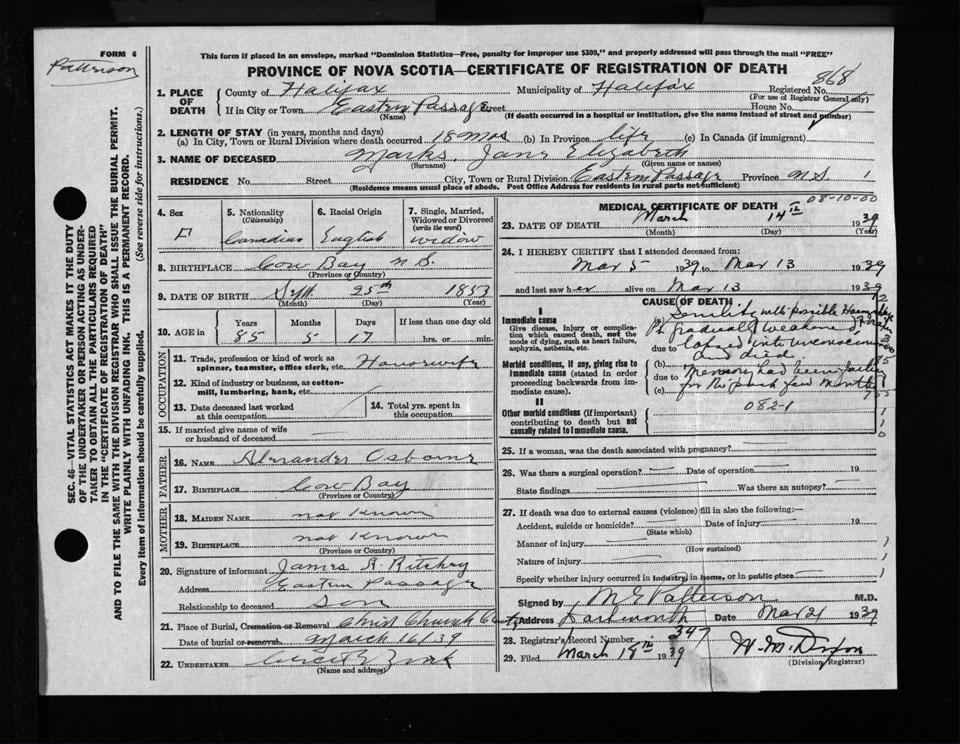 FORM 6
Patterson
This form if placed in an envelope, marked "Dominion Statistics—Free, penalty for improper use $300," and properly addressed will pass through the mail "FREE"
PROVINCE OF NOVA SCOTIA—CERTIFICATE OF REGISTRATION OF DEATH
868
1. PLACE OF DEATH County of Halifax Municipality of Halifax Registered No.
(For use of Registrar General only)
If in City or Town Eastern Passage Street House No.
(Name) (If death occurred in a hospital or institution, give the name instead of street and number)
2. LENGTH OF STAY (in years, months and days)
(a) In City, Town or Rural Division where death occurred 18 mos (b) In Province life (c) In Canada (if immigrant)
3. NAME OF DECEASED Marks, Jane Elizabeth
(Surname) (Given name or names)
RESIDENCE No. Street City, Town or Rural Division Eastern Passage Province N.S. 1
(Residence means usual place of abode. Post Office Address for residents in rural parts not sufficient)
08-10-00
4. Sex F
5. Nationality (Citizenship) Canadian
6. Racial Origin English
7. Single, Married, Widowed or Divorced (write the word) widow
8. BIRTHPLACE Cow Bay N.S.
(Province or Country)
9. DATE OF BIRTH Sept. 25th 1853
(Month) (Day) (Year)
10. AGE in Years Months Days If less than one day old
85 5 17 hrs. or min.
OCCUPATION
11. Trade, profession or kind of work as spinner, teamster, office clerk, etc. Housewife
12. Kind of industry or business, as cotton-mill, lumbering, bank, etc.
13. Date deceased last worked at this occupation
14. Total yrs. spent in this occupation
15. If married give name of wife or husband of deceased
FATHER
16. NAME Alexander Osborne
17. BIRTHPLACE Cow Bay
(Province or Country)
MOTHER
18. MAIDEN NAME not known
19. BIRTHPLACE not known
(Province or Country)
20. Signature of informant James A. Ritchey
Address Eastern Passage
Relationship to deceased son
21. Place of Burial, Cremation or Removal Christ Church
Date of burial or removal March 16/39
22. UNDERTAKER
(Name and address)
MEDICAL CERTIFICATE OF DEATH
23. DATE OF DEATH March 14th 1939
(Month) (Day) (Year)
24. I HEREBY CERTIFY that I attended deceased from:
Mar 5 1939 to Mar 13 1939
and last saw her alive on Mar 13 1939
CAUSE OF DEATH
I
Immediate cause
Give disease, injury or complication which caused death, not the mode of dying, such as heart failure, asphyxia, asthenia, etc.
Morbid conditions, if any, giving rise to immediate cause (stated in order proceeding backwards from immediate cause).
II
Other morbid conditions (if important) contributing to death but not causally related to immediate cause.
(a) Senility with possible
gradually weakened
due to lapsed into unconsciousness
and died
(b)
due to Memory had been failing
(c) for the past few months
082-1
25. If a woman, was the death associated with pregnancy?
26. Was there a surgical operation? Date of operation 19
State findings Was there an autopsy?
27. If death was due to external causes (violence) fill in also the following:—
Accident, suicide or homicide? Date of injury 19
(State which)
Manner of injury
(How sustained)
Nature of injury
Specify whether injury occurred in industry, in home, or in public place
Signed by M G Patterson M.D.
Address Dartmouth Date Mar 21 1939
28. Registrar's Record Number 347
29. Filed March 18th 1939 W. M. Dixon
(Division Registrar)
SEC. 46—VITAL STATISTICS ACT MAKES IT THE DUTY
OF THE UNDERTAKER OR PERSON ACTING AS UNDERTAKER TO OBTAIN ALL THE PARTICULARS REQUIRED
IN THE "CERTIFICATE OF REGISTRATION OF DEATH"
AND TO FILE THE SAME WITH THE DIVISION REGISTRAR WHO SHALL ISSUE THE BURIAL PERMIT.
WRITE PLAINLY WITH UNFADING INK. THIS IS A PERMANENT RECORD.
Every item of information should be carefully supplied. (See reverse side for instructions.)